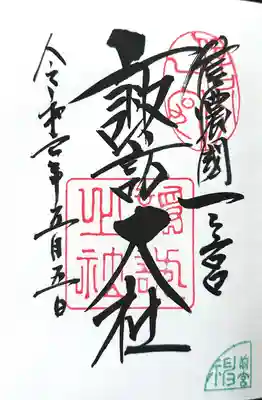 信濃國一之宮
諏訪大社
令和年五月五日
諏訪
之社
前宮